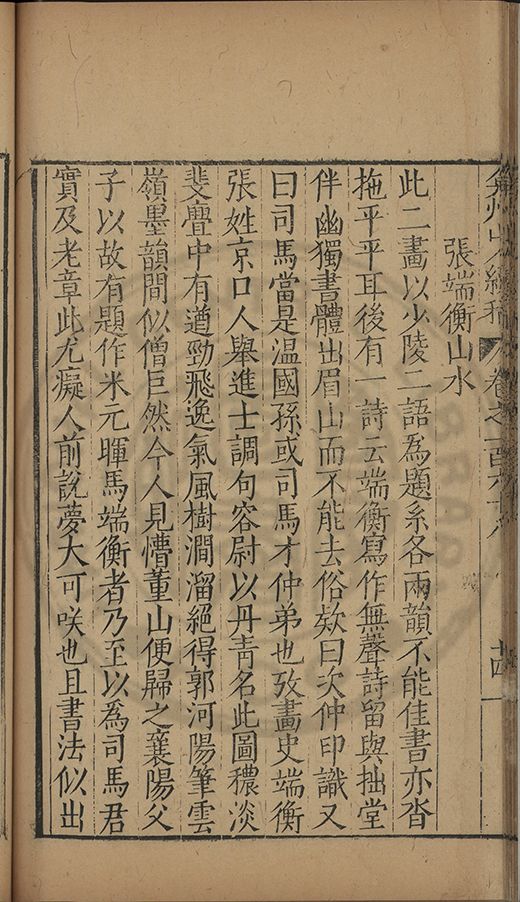 弇州山人續稿 卷之一百六十八 十四
張端衡山水
此二畫以少陵二語爲題系各兩韻不能佳書亦沓
拖平平耳後有一詩云端衡寫作無聲詩留與拙堂
伴幽獨書體出眉山而不能去俗欵曰次仲印識又
曰司馬當是温國孫或司馬才仲弟也攷畫史端衡
張姓京口人舉進士調句容尉以丹青名此圖穠淡
斐亹中有遒勁飛逸氣風樹澗溜絕得郭河陽筆雲
嶺墨韻間似僧巨然今人見懵董山便歸之襄陽父
子以故有題作米元暉馬端衡者乃至以爲司馬君
實及老章此尤癡人前說夢大可咲也且書法似出